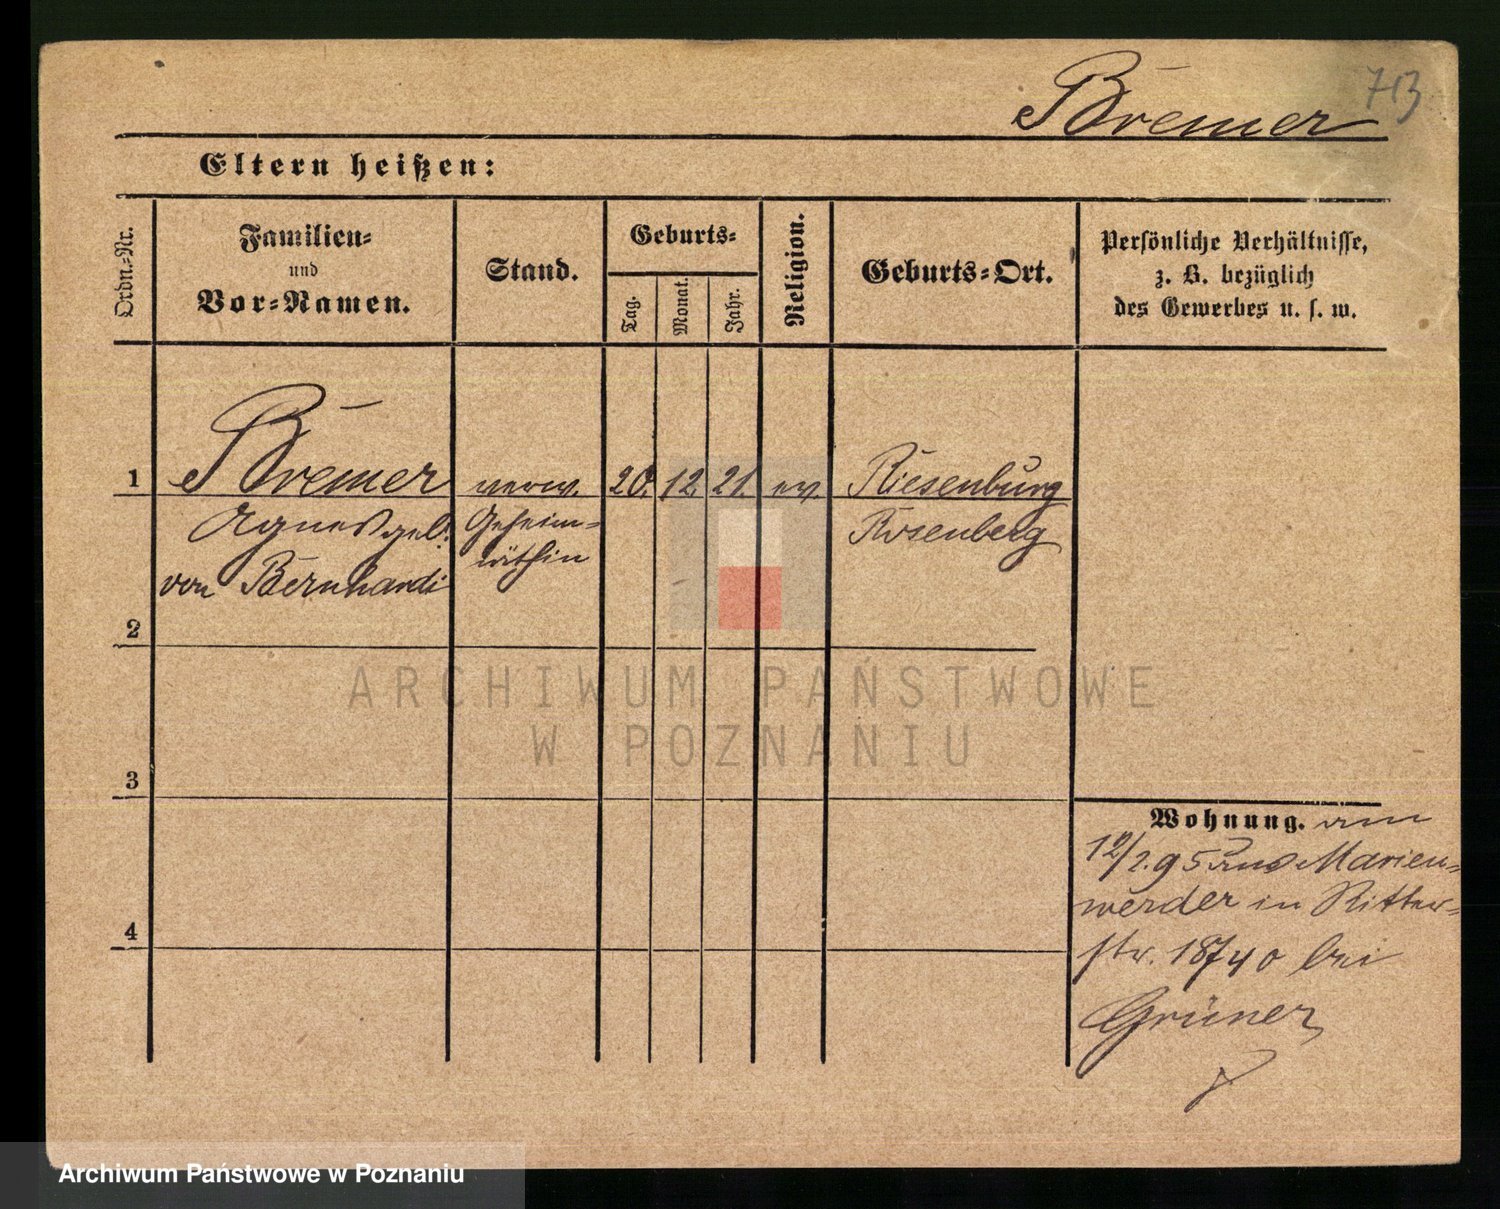 Bremer 713
Eltern heißen:
Ordn.-Nr.
Familien-
und
Vor-Namen.
Stand.
Geburts-
Tag.
Monat.
Jahr.
Religion.
Geburts-Ort.
Persönliche Verhältnisse,
z. B. bezüglich
des Gewerbes u. s. w.
1 Bremer verw. 20. 12. 21. ev. Riesenburg
Agnes geb. Geheim- Rosenberg
von Bernhardi räthin
2
3
4
Wohnung. am
12/2. 95 aus Marien-
werder in Ritter-
str. 18/40 bei
Grüner
ARCHIWUM PAŃSTWOWE
W POZNANIU
Archiwum Państwowe w Poznaniu